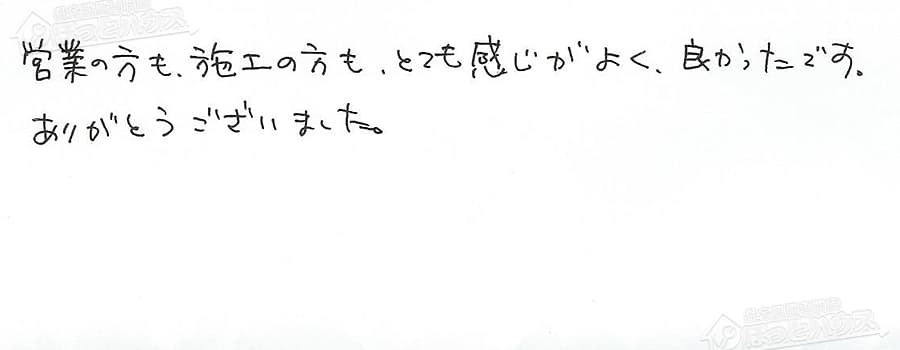 営業の方も、施工の方も、とても感じがよく、良かったです。
ありがとうございました。